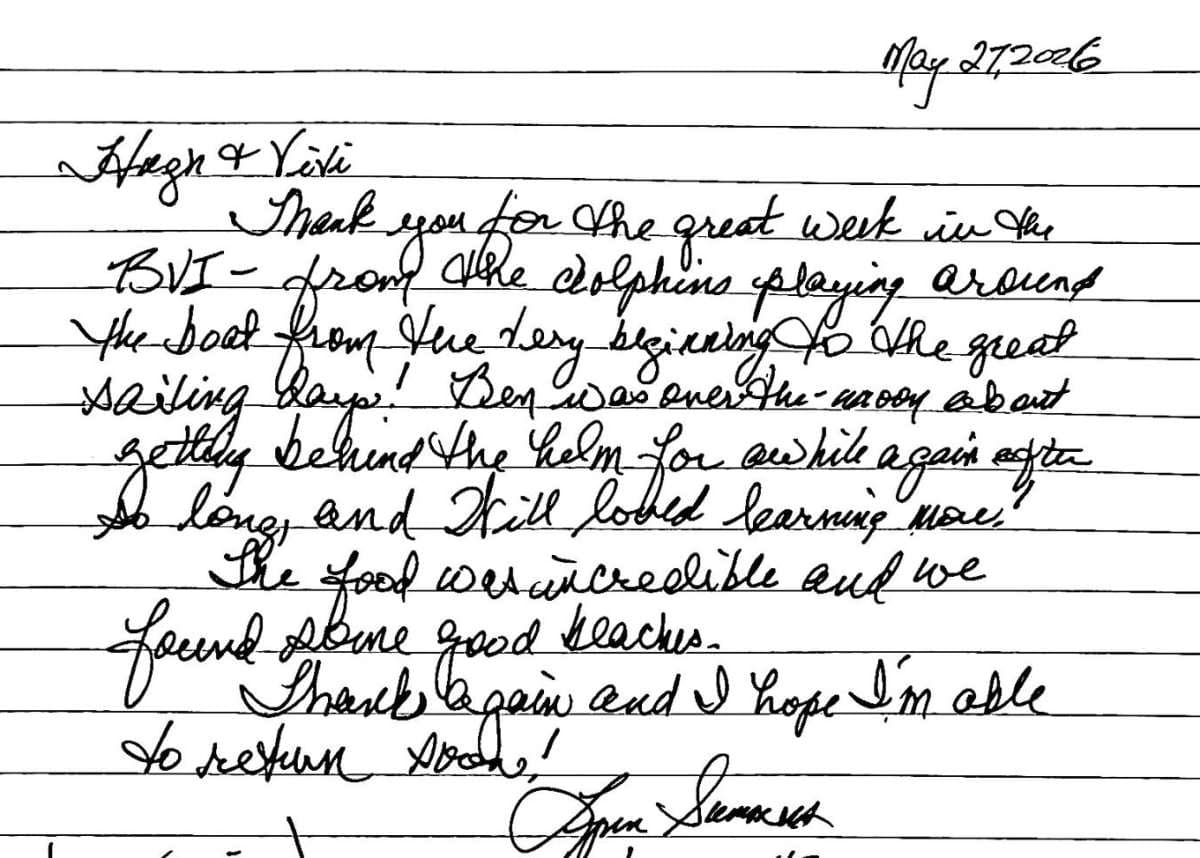 May 27, 2026
Hugh & Vivi
Thank you for the great week in the
BVI - from the dolphins playing around
the boat from the very beginning to the great
sailing days! Ben was over-the-moon about
getting behind the helm for awhile again after
so long, and Will loved learning more!
The food was incredible and we
found some good beaches.
Thanks again and I hope I'm able
to return soon!
Lynn